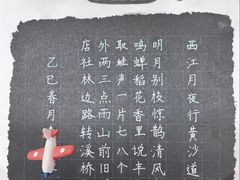 西江月夜行黄沙道
明月别枝惊鹊清风
鸣蝉稻花香里说丰
取蛙声一片七八个
外两三点雨山前旧
店社林边路转溪桥
乙巳春月